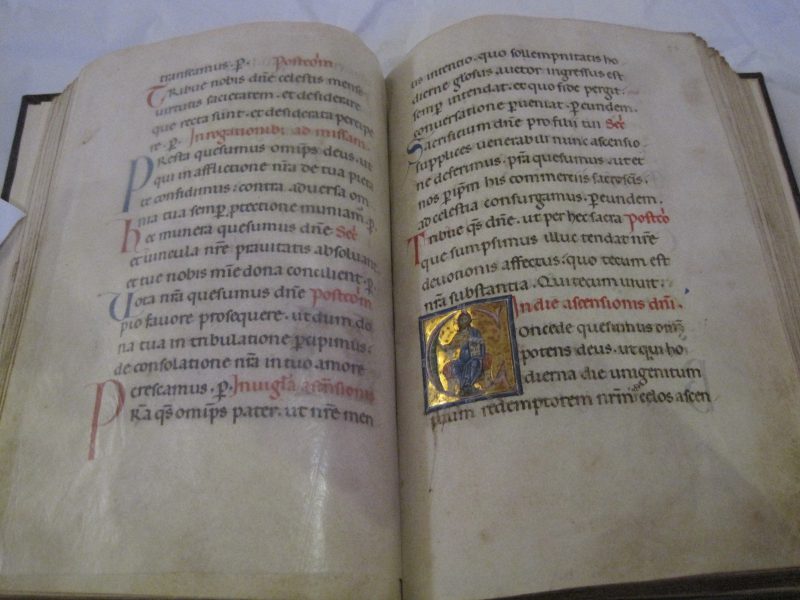 transeamus. p. Postcom̄
Tribue nobis dn̄e celestis mense
virtutis sacietatem. et desiderare
que recta sunt. et desiderata percipe
re. p. In rogationib; ad missam.
Presta quesumus omīps deus. ut
qui in afflictione nr̄a de tua pieta
te confidimus. contra adversa om
nia tua semp̱ ꝓtectione muniam̄. p.
hec munera quesumus dn̄e Sec̄
et uincula nr̄e prauitatis absoluant.
et tue nobis mīe dona concilient. p.
Uota nr̄a quesumus dn̄e postcom̄
pio favore prosequere. ut dum do
na tua in tribulatione p̱cipimus.
de consolatione nr̄a in tuo amore
crescamus. p. In uigl̄a ascensionis
Pr̄a qs̄ omīps pater. ut nr̄e men
tis intentio. quo sollempnitatis ho
dierne glosus auctor ingressus est
semp̱ intendat. et quo fide pergit.
conversatione p̱ueniat. p̱ eundem.
Sacrificium dn̄e pro filii tui Sec̄
supplices uenerabili nunc ascensio
ne deferimus. pr̄a quesumus. ut et
nos p̱ ip̄m his commertiis sacrosc̄is.
ad celestia consurgamus. p̱ eundem.
Tribue qs̄ dn̄e. ut per hec sacra Postco
que sumpsimus illuc tendat nr̄e
deuotionis affectus. quo tecum est
nr̄a substantia. Qui tecum uiuit.
In die ascensionis dn̄i.
Concede quesumus om̄i
potens deus. ut qui ho
dierna die unigenitum
tuum redemptorem nr̄m celos ascen